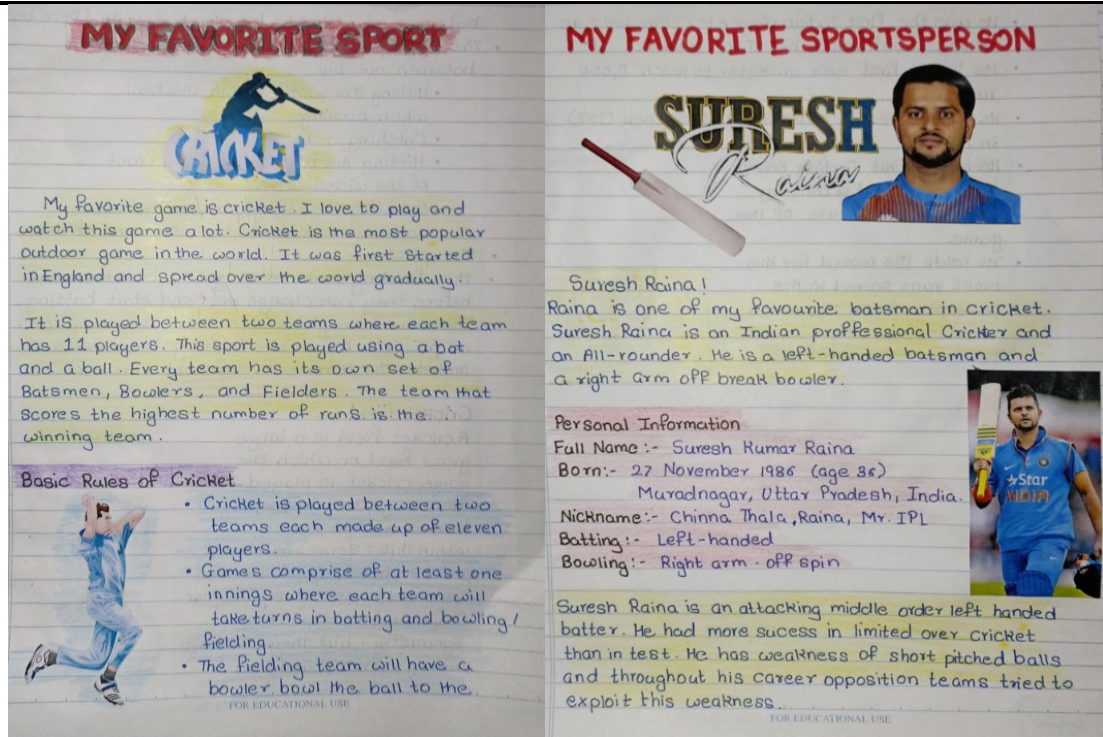 MY FAVORITE SPORT
CRICKET
My favorite game is cricket. I love to play and
watch this game a lot. Cricket is the most popular
outdoor game in the world. It was first started
in England and spread over the world gradually.
It is played between two teams where each team
has 11 players. This sport is played using a bat
and a ball. Every team has its own set of
Batsmen, Bowlers, and Fielders. The team that
scores the highest number of runs is the
winning team.
Basic Rules of Cricket
• Cricket is played between two
teams each made up of eleven
players.
• Games comprise of at least one
innings where each team will
take turns in batting and bowling/
fielding.
• The fielding team will have a
bowler bowl the ball to the
FOR EDUCATIONAL USE
MY FAVORITE SPORTSPERSON
SURESH
Raina
Suresh Raina!
Raina is one of my favourite batsman in cricket.
Suresh Raina is an Indian proffessional Cricketer and
an All-rounder. He is a left-handed batsman and
a right arm off break bowler.
Personal Information
Full Name :- Suresh Kumar Raina
Born:- 27 November 1986 (age 36)
Muradnagar, Uttar Pradesh, India.
Nickname:- Chinna Thala, Raina, Mr. IPL
Batting:- Left-handed
Bowling:- Right arm - off spin
Star
INDIA
Suresh Raina is an attacking middle order left handed
batter. He had more sucess in limited over cricket
than in test. He has weakness of short pitched balls
and throughout his career opposition teams tried to
exploit this weakness.
FOR EDUCATIONAL USE